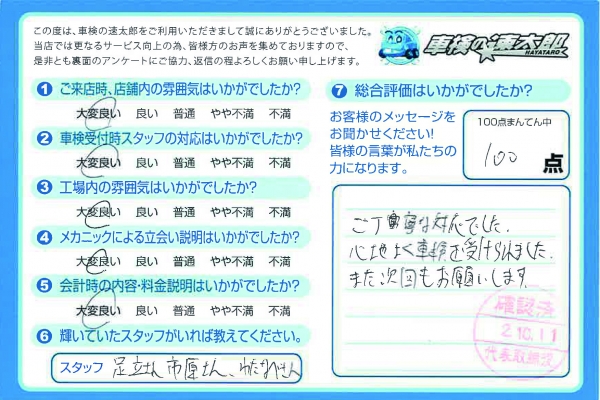 この度は、車検の速太郎をご利用いただきまして誠にありがとうございました。
当店では更なるサービス向上の為、皆様方のお声を集めておりますので、
是非とも裏面のアンケートにご協力、返信の程よろしくお願い申し上げます。
車検の速太郎
HAYATARO
1 ご来店時、店舗内の雰囲気はいかがでしたか?
大変良い 良い 普通 やや不満 不満
2 車検受付時スタッフの対応はいかがでしたか?
大変良い 良い 普通 やや不満 不満
3 工場内の雰囲気はいかがでしたか?
大変良い 良い 普通 やや不満 不満
4 メカニックによる立会い説明はいかがでしたか?
大変良い 良い 普通 やや不満 不満
5 会計時の内容・料金説明はいかがでしたか?
大変良い 良い 普通 やや不満 不満
6 輝いていたスタッフがいれば教えてください。
スタッフ 足立さん 市原さん、わたなべさん
7 総合評価はいかがでしたか?
お客様のメッセージを
お聞かせください!
皆様の言葉が私たちの
力になります。
100点まんてん中
100 点
ご丁寧な対応でした。
心地よく車検を受けられました。
また次回もお願いします
確認済
2.10.11
代表取締役